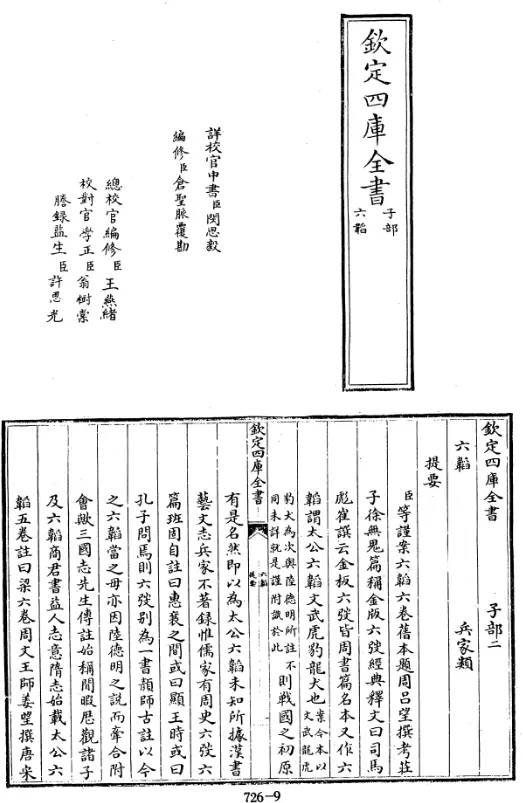 欽定四庫全書
子部
六韜
詳校官中書臣閔思毅
編修臣倉聖脈覆勘
總校官編修臣王燕緒
校對官學正臣翁樹棠
謄錄監生臣許思光
欽定四庫全書 子部二
六韜 兵家類
提要
臣等謹案六韜六卷舊本題周呂望撰考莊
子徐無鬼篇稱金版六弢經典釋文曰司馬
彪崔譔云金板六弢皆周書篇名本又作六
韜謂太公六韜文武虎豹龍犬也案今本以文武龍虎
豹犬為次與陸德明所註不同未詳孰是謹附識於此則戰國之初原
欽定四庫全書
六韜
提要
有是名然即以為太公六韜未知所據漢書
藝文志兵家不著録惟儒家有周史六弢六
篇班固自註曰惠襄之間或曰顯王時或曰
孔子問焉則六弢別為一書顔師古註以今
之六韜當之毋亦因陸德明之説而牽合附
會歟三國志先生傳註始稱閒暇歴觀諸子
及六韜商君書益人志意隋志始載太公六
韜五卷註曰梁六卷周文王師姜望撰唐宋
726-9